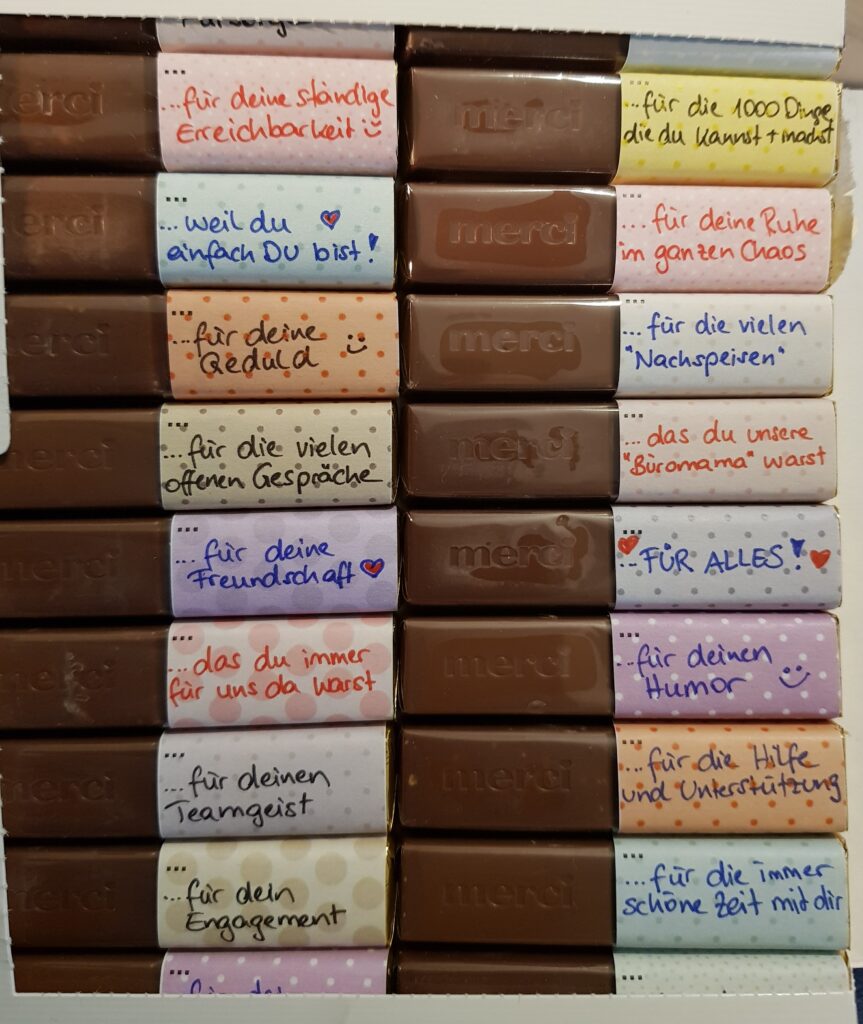 merci
...für deine ständige
Erreichbarkeit
merci
...weil du
einfach DU bist!
merci
...für deine
Geduld
merci
...für die vielen
offenen Gespräche
merci
...für deine
Freundschaft
merci
...das du immer
für uns da warst
merci
...für deinen
Teamgeist
merci
...für dein
Engagement
merci
...für die 1000 Dinge
die du kannst + machst
merci
...für deine Ruhe
im ganzen Chaos
merci
...für die vielen
"Nachspeisen"
merci
...das du unsere
"Büromama" warst
merci
...FÜR ALLES!
merci
...für deinen
Humor
merci
...für die Hilfe
und Unterstützung
merci
...für die immer
schöne Zeit mit dir